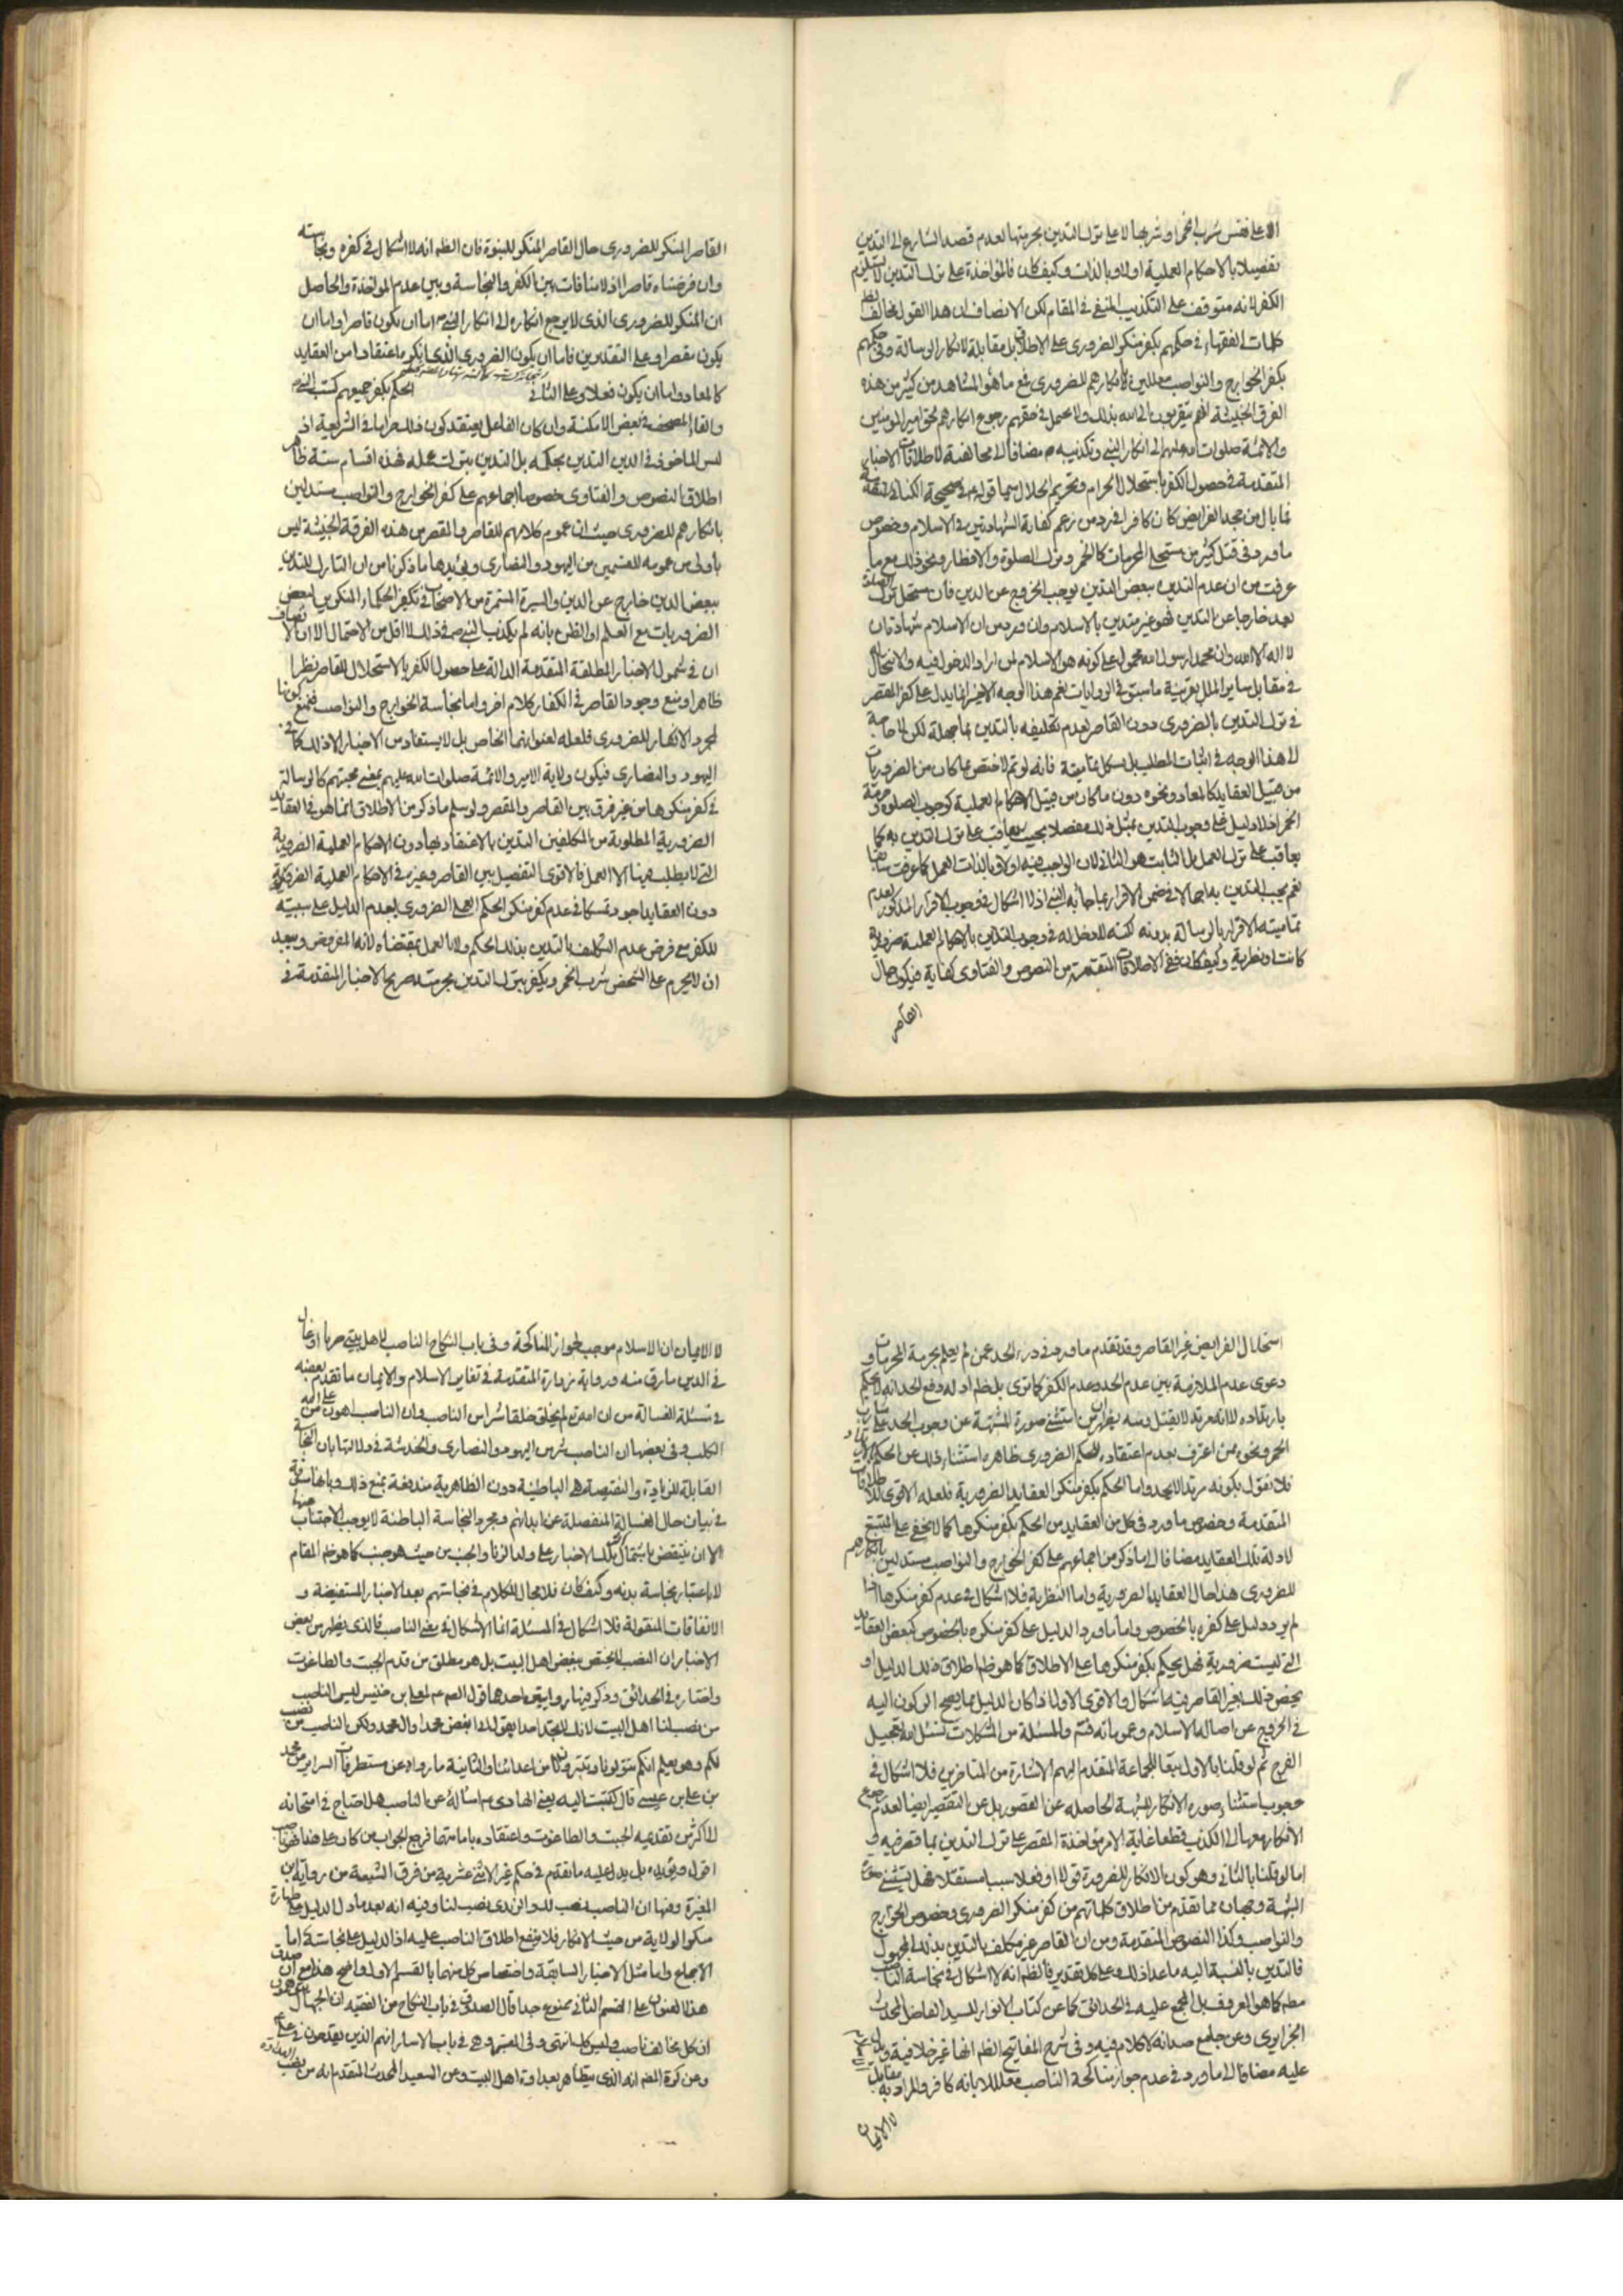 الا على نفس شرب الخمر او شربها لا على ترك التدين بحرمتها لعدم قصد الشارع الى التدين
تفصيلا بالاحكام العملية اولا وبالذات وكيف كان فالمؤاخذة على ترك التدين لا يستلزم
الكفر لانه متوقف على التكذيب المنفي في المقام لكن الانصاف ان هذا القول مخالف
كلمات الفقهاء في حكمهم بكفر منكر الضروري على الاطلاق بل مقابلة لانكار الرسالة وفي حكمهم
بكفر الخوارج والنواصب معللين لانكارهم للضروري مع ما هو المشاهد من كثير من هذه
الفرق الخبيثة انهم يتقربون الى الله بذلك ولا يحمل في حقهم رجوع انكارهم لحق امير المؤمنين
والائمة صلوات الله عليهم الى انكار النبي وتكذيبه مضافا الى مخالفته لاطلاقات الاخبار
المتقدمة في حصول الكفر باستحلال الحرام وتحريم الحلال سيما قوله في صحيحة الكناني
فما بال من جحد الفرايض كان كافرا في رد من زعم كفاية الشهادتين في الاسلام وخصوص
ما ورد في قتل كثير من مستحلي المحرمات كالخمر وترك الصلوة والافطار ونحو ذلك مع ما
عرفت من ان عدم التدين ببعض الدين يوجب الخروج عن الدين فان مستحل ترك الصلوة
يعد خارجا عن التدين فهو غير متدين بالاسلام وان ورد من ان الاسلام شهادة ان
لا اله الا الله وان محمدا رسول الله محمول على كونه هو الاسلام لمن اراد الدخول فيه والانتحال به
في مقابل ساير الملل بقرينة ما سبق في الروايات نعم هذا الوجه الاخير انما يدل على كفر المقصر
في ترك التدين بالضروري دون القاصر لعدم تكليفه بالتدين بما جهله لكن لا حاجة
الى هذا الوجه في اثبات المطلب بل يشكل تماميته فانه لو تم لاختص بما كان من الضروريات
من قبيل العقايد كالمعاد ونحوه دون ما كان من قبيل الاحكام العملية كوجوب الصلوة وحرمة
الخمر اذ لا دليل على وجوب التدين بمثل ذلك مفصلا بحيث يعاقب على ترك التدين به كما
يعاقب على ترك العمل بل الثابت هو الثاني لان الواجب فيه اولا وبالذات العمل كما عرفت سابقا
نعم يجب التدين به اجمالا في ضمن الاقرار بما جاء به النبي اذ لا اشكال في وجوب الاقرار المذكور لعدم
تمامية الاقرار بالرسالة بدونه لكنه لا دخل له في وجوب التدين بالاحكام العملية ضرورية
كانت او نظرية وكيف كان ففي الاطلاقات المتقدمة من النصوص والفتاوى كفاية فيكون حال
القاصر
القاصر المنكر للضروري حال القاصر المنكر للنبوة فان الظم انه لا اشكال في كفره ونجاسته
وان فرضناه قاصرا اذ لا منافات بين الكفر والنجاسة وبين عدم المؤاخذة والحاصل
ان المنكر للضروري الذي لا يرجع انكاره الى انكار النبي اما ان يكون قاصرا واما ان
يكون مقصرا وعلى التقديرين فاما ان يكون الضروري الذي انكره اعتقادا من العقايد
كالمعاد واما ان يكون فعلا وعلى الثاني الحكم بكفر جميعهم كسب النبي
والقاء المصحف في بعض الامكنة وان كان الفاعل يعتقد كون ذلك حراما في الشريعة اذ
ليس الماخوذ في الدين التدين بحكمه بل التدين بترك عمله فهذه اقسام ستة ظاهر
اطلاق النصوص والفتاوى خصوصا اجماعهم على كفر الخوارج والنواصب مستدلين
بانكارهم للضروري حيث ان عموم كلامهم للقاصر والمقصر من هذه الفرقة الخبيثة ليس
باولى من عمومه للقسمين من اليهود والنصارى ويؤيدها ما ذكرنا من ان التارك للتدين
ببعض الدين خارج عن الدين والسيرة المستمرة من الاصحاب في تكفير الحكماء المنكرين لبعض
الضروريات مع العلم او الظن بانه لم يكذب النبي في ذلك لا اقل من الاحتمال الا ان الانصاف
ان في شمول الاخبار المطلقة المتقدمة الدالة على حصول الكفر بالاستحلال للقاصر نظرا
ظاهرا ومنع وجود القاصر في الكفار كلام اخر واما نجاسة الخوارج والنواصب فنمنع كونها
لمجرد الانكار للضروري فلعله لعنوانهما الخاص بل لا يستفاد من الاخبار الا ذلك كما في
اليهود والنصارى فيكون ولاية الامير والائمة صلوات الله عليهم بمعنى محبتهم كالرسالة
في كفر منكرها من غير فرق بين القاصر والمقصر ولو سلم ما ذكر من الاطلاق انما هو في العقايد
الضرورية المطلوبة من المكلفين التدين بالاعتقاد بها دون الاحكام العملية الضرورية
التي لا يطلب فيها الا العمل فالاقوى التفصيل بين القاصر وغيره في الاحكام العملية الضرورية
دون العقايد اجود تمسكا في عدم كفر منكر الحكم العملي الضروري لعدم الدليل على سببيته
للكفر مع فرض عدم التكليف بالتدين بذلك الحكم ولا بالعمل بمقتضاه لانه المفروض ويبعد
ان لا يحرم على الشخص شرب الخمر ويكفر بترك التدين بحرمته صريح الاخبار المتقدمة في
استحلال الفرايض غير القاصر وقد تقدم ما ورد في درء الحد عمن لم يعلم بحرمة المحرمات و
دعوى عدم الملازمة بين عدم الحد وعدم الكفر كما ترى بل ظم ادلة دفع الحد انه لا يحكم
بارتداده لا انه مرتد لا يقتل ومنه يظهر ان من استثنى صورة الشبهة عن وجوب الحد على شارب
الخمر ونحوه ممن اعترف بعدم اعتقاده للحكم الضروري ظاهره استثناء ذلك عن الحكم
فلا نقول بكونه مرتدا لا يحد واما الحكم بكفر منكر العقايد الضرورية فلعله الاقوى للاطلاقات
المتقدمة وخصوص ما ورد في كل من العقايد من الحكم بكفر منكرها كما لا يخفى على المتتبع
لادلة تلك العقايد مضافا الى ما ذكر من اجماعهم على كفر الخوارج والنواصب مستدلين بانكارهم
للضروري هذا حال العقايد الضرورية واما النظرية فلا اشكال في عدم كفر منكرها اذا
لم يرد دليل على كفره بالخصوص واما ما ورد الدليل على كفر منكره بالخصوص كبعض العقايد
التي ليست ضرورية فهل يحكم بكفر منكرها على الاطلاق كما هو ظم اطلاق ذلك الدليل او
يختص ذلك بغير القاصر فيه اشكال والاقوى الاول اذا كان الدليل مما يصح الركون اليه
في الخروج عن اصالة الاسلام وعموماته فتم والمسئلة من المشكلات نسئل الله تعجيل
الفرج ثم لو قلنا بالاول تبعا للجماعة المتقدم اليهم الاشارة من المتاخرين فلا اشكال في
وجوب استثناء صورة الانكار للشبهة الحاصلة عن القصور بل عن التقصير ايضا لعدم رجوع
الانكار معها الى الكذب قطعا غاية الامر مؤاخذة المقصر على ترك التدين بما قصر فيه و
اما لو قلنا بالثاني وهو كون الانكار للضرورة قولا او فعلا سببا مستقلا فهل يستثنى صورة
الشبهة وجهان مما تقدم من اطلاق كلماتهم من كفر منكر الضروري وخصوص الخوارج
والنواصب وكذا النصوص المتقدمة ومن ان القاصر غير مكلف بالتدين بذلك المجهول
فالتدين بالنسبة اليه ما عدا ذلك وعلى كل تقدير فالظم انه لا اشكال في نجاسة الناصب
مطم كما هو المعروف بل المجمع عليه في الحدائق كما عن كتاب الانوار للسيد الفاضل المحدث
الجزايري وعن جامع صدانه لا كلام فيه وفي شرح المفاتيح الظم انها غير خلافية ويدل
عليه مضافا الى ما ورد في عدم جواز مناكحة الناصب معللا بانه كافر والمراد به مقابل
لا الايمان
لا الايمان ان الاسلام موجب لجواز المناكحة وفي باب النكاح الناصب لاهل بيتي حربا او غال
في الدين مارق منه ورواية زرارة المتقدمة في تغاير الاسلام والايمان ما تقدم بعضه
في مسئلة الغسالة من ان الله لم يخلق خلقا شرا من الناصب وان الناصب اهون على الله من
الكلب وفي بعضها ان الناصب شر من اليهود والنصارى والخدشة في دلالتها بان النجاسة
القابلة للزيادة والنقيصة هي الباطنية دون الظاهرية مندفعة بمنع ذلك وبانها مسوقة
في بيان حال الغسالة المنفصلة عن ابدانهم ومجرد النجاسة الباطنة لا يوجب الاجتناب عنها
الا ان ينتقض باشتمال تلك الاخبار على ولد الزنا والجنب من حيث هو جنب كما هو ظم المقام
لا باعتبار نجاسة بدنه وكيف كان فلا مجال للكلام في نجاستهم بعد الاخبار المستفيضة و
الاتفاقات المنقولة فلا اشكال في المسئلة انما الاشكال في معنى الناصب فالذي يظهر من بعض
الاخبار ان النصب لا يختص ببغض اهل البيت بل هو مطلق من قدم الجبت والطاغوت
واختاره في الحدائق وذكر فيها روايتين احدهما قول الصم لمعلى بن خنيس ليس الناصب
من نصب لنا اهل البيت لانك لا تجد احدا يقول انا ابغض محمدا وال محمد ولكن الناصب من نصب
لكم وهو يعلم انكم تتولونا وتتبرؤن من اعدائنا والثانية ما رواه عن مستطرفات السراير من محمد
بن علي بن عيسى قال كتبت اليه يعني الهادي اسئله عن الناصب هل احتاج في امتحانه
الى اكثر من تقديمه الجبت والطاغوت واعتقاده بامامتهما فرجع الجواب من كان على هذا فهو ناصب
اقول ويؤيده بل يدل عليه ما تقدم في حكم غير الاثنى عشرية من فرق الشيعة من رواية ابن
المغيرة وفيها ان الناصب نصب لك والزيدي نصب لنا وفيه انه بعد ما دل الدليل على طهارة
منكر الولاية من حيث الانكار فلا ينفع اطلاق الناصب عليه اذ الدليل على نجاسته اما
الاجماع واما مثل الاخبار السابقة واختصاص كل منهما بالقسم الاول واضح هذا مع ان صدق
هذا العنوان على القسم الثاني ممنوع جدا قال الصدوق في باب النكاح من الفقيه ان الجهال يتوهمون
ان كل مخالف ناصب وليس كك انتهى وفي المعتبر وهي في باب الاسار انهم الذين يقدحون في علي
وعن كرة المنم انه الذي يتظاهر بعداوة اهل البيت وعن السعيد المحدث المتقدم انه من نصب العداوة